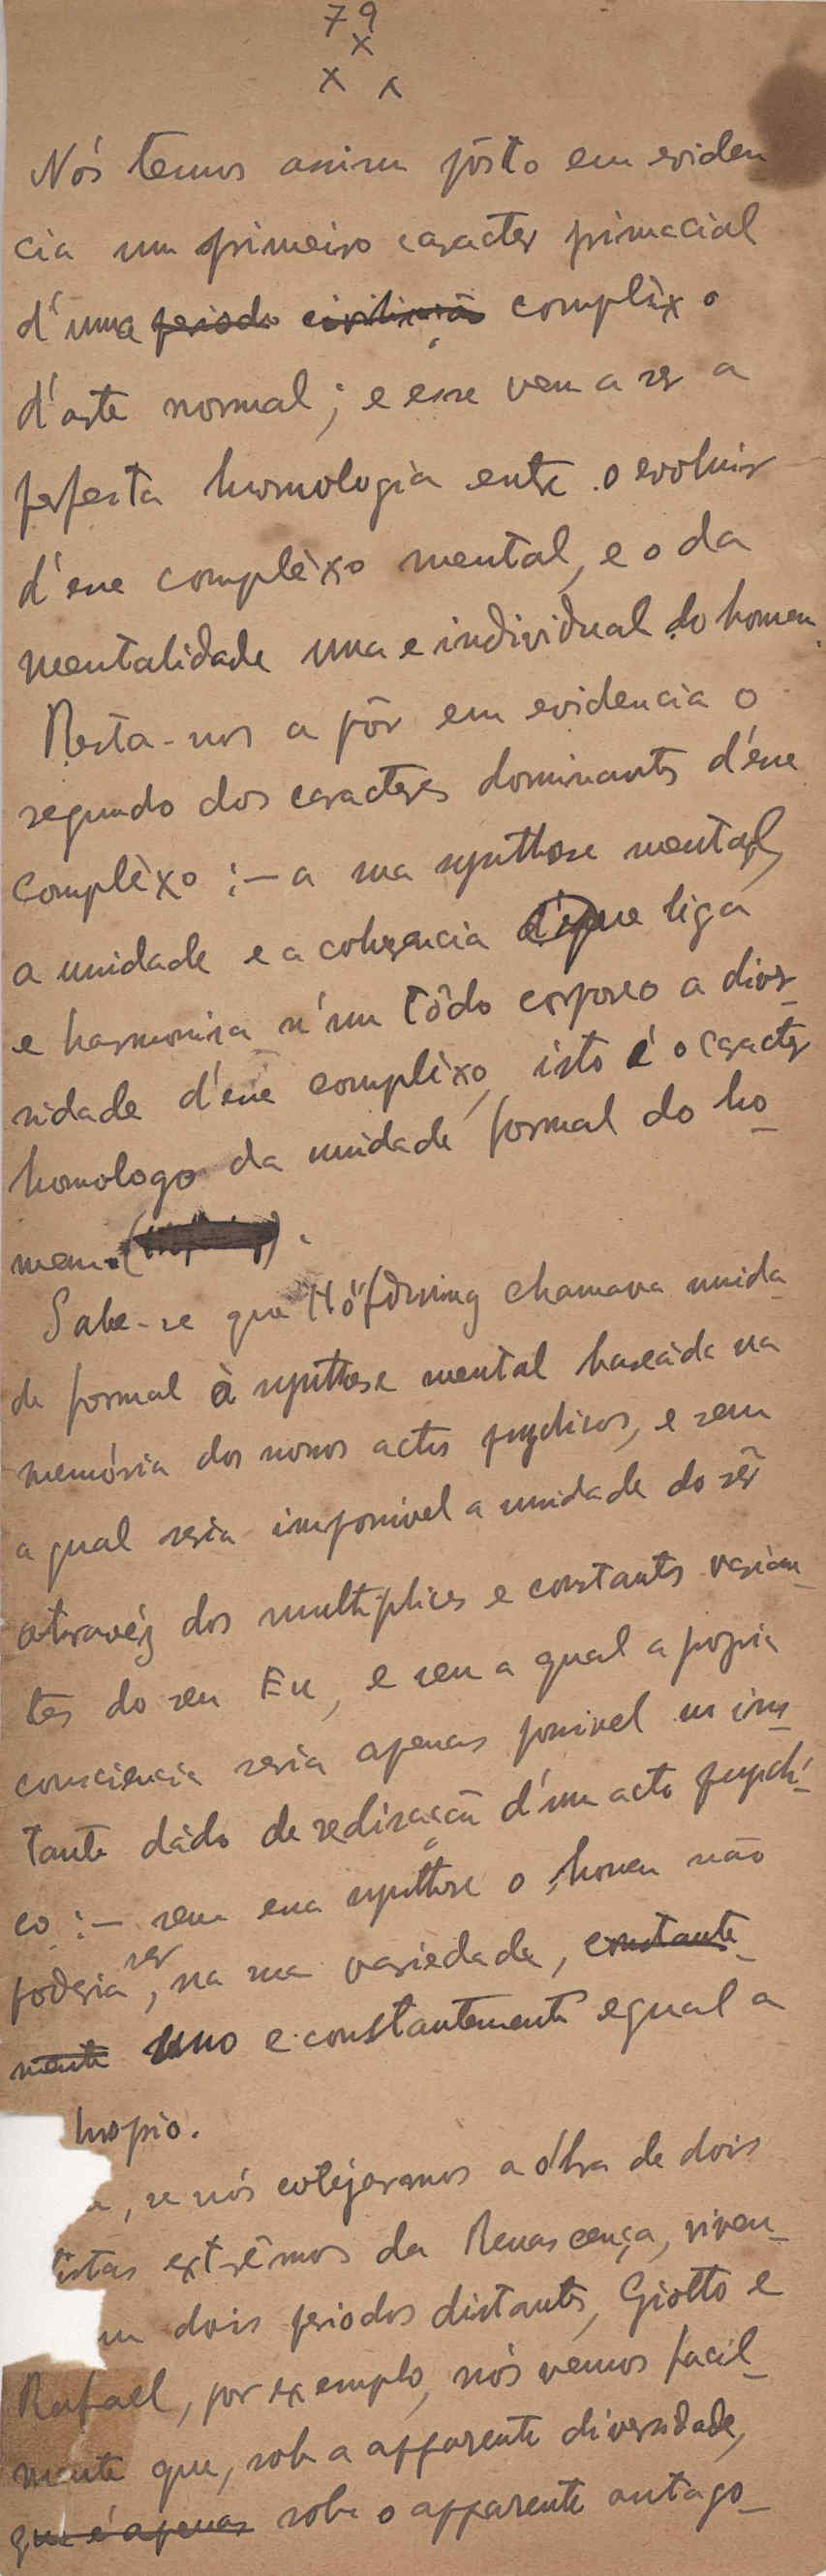 79
x
x x
Nós temos assim pôsto em eviden
cia um primeiro caracter primacial
d'uma periodo civilisação complèxo
d'arte normal; e esse vem a ser a
perfeita homologia entre o evoluir
d'esse complèxo mental, e o da
mentalidade una e individual do homem.
Resta-nos a pôr em evidencia o
segundo dos caracteres dominantes d'esse
complèxo :— a sua synthese mental,
a unidade e a coherencia que liga
e harmonisa n'um tôdo corporeo a diver-
sidade d'esse complèxo, isto é o caracter
homologo da unidade formal do ho-
mem.
Sabe-se que Höffdining chamava unida-
de formal à synthese mental baseáda na
memória dos nossos actos psychicos, e sem
a qual seria impossivel a unidade do sêr
atravéz dos multiplices e constantes varian-
tes do seu Eu, e sem a qual a propria
consciencia seria apenas possivel no ins-
tante dádo de realisação d'um acto psychi-
co :— sem essa synthese o homem não
poderia ser, na sua variedade, constante-
mente uno e constantemente egual a
proprio.
, se nós cotejarmos a óbra de dois
istas extrêmos da Renascença, viven-
m dois periodos distantes, Giotto e
Rafael, por exemplo, nós vemos facil-
mente que, sob a apparente diversidade,
que é apenas sob o apparente antago-